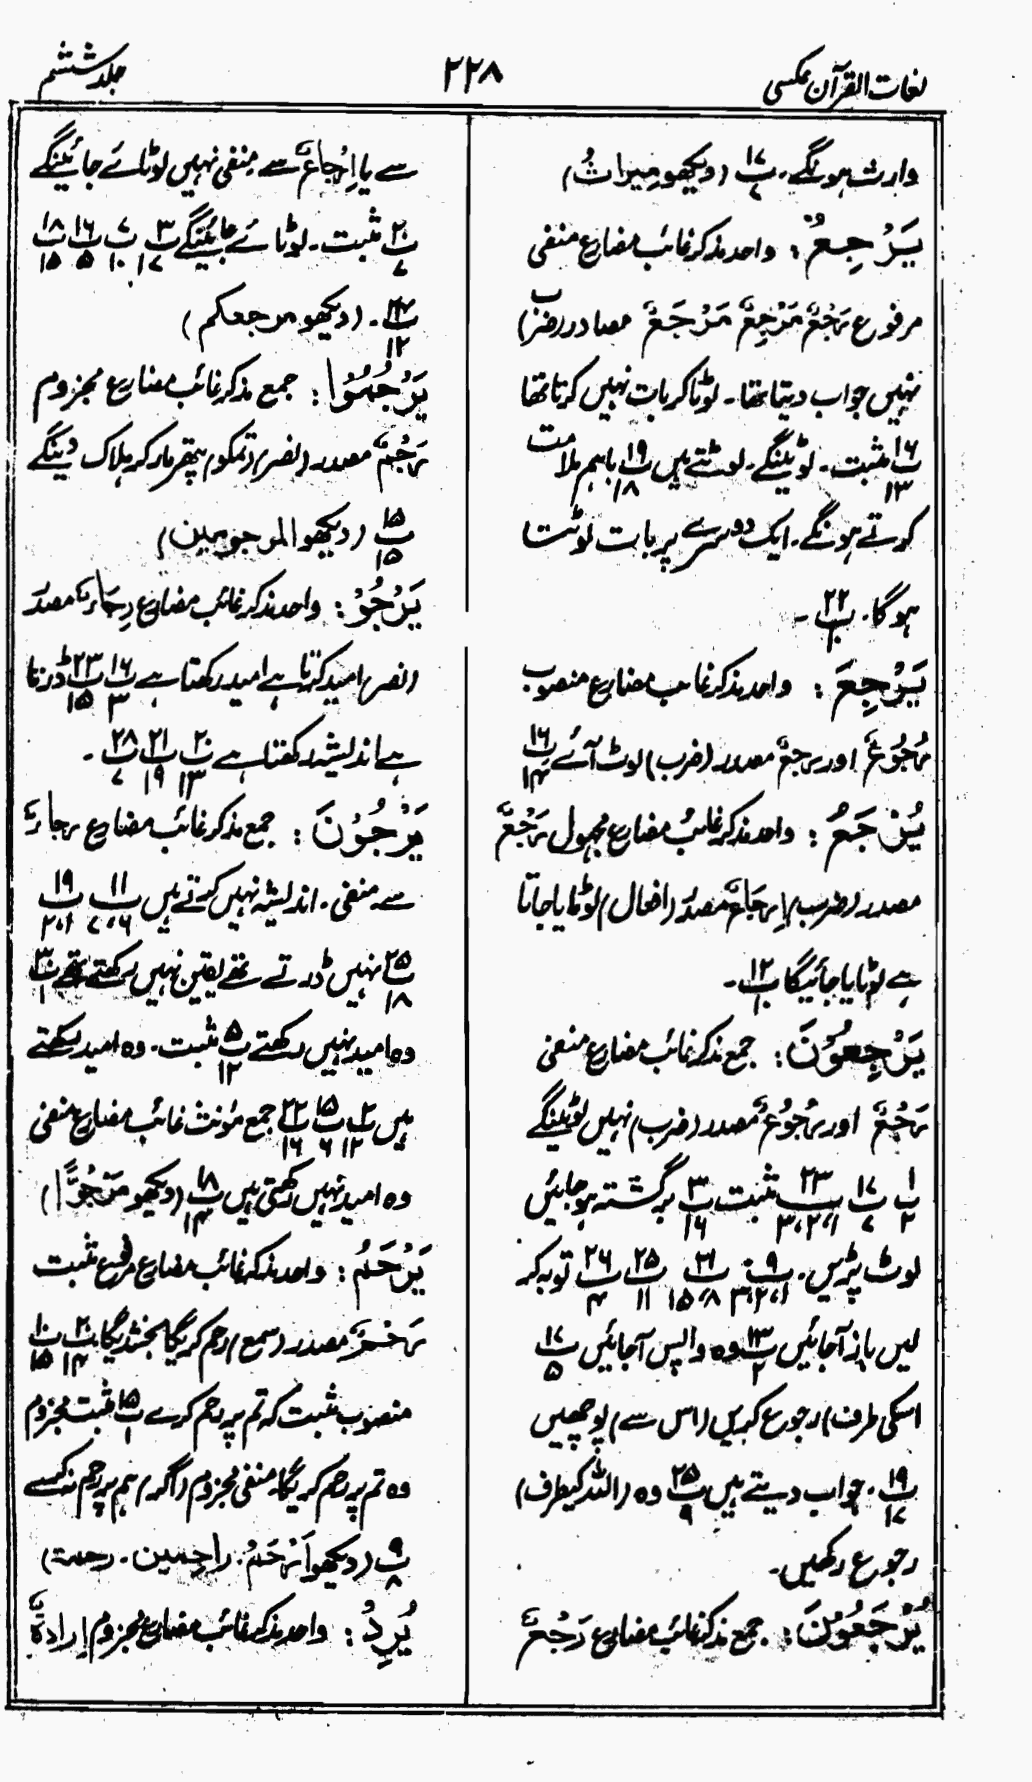 لغات القرآن عکسی
۲۲۸
جلد ششم
وارث ہونگے۔ پ ۱۷ ۷ (دیکھو میراثُ)
يَرْجِعُ: واحد مذکر غائب مضارع منفی
مرفوع رَجْعٌ مَرْجِعٌ مَرْجَعٌ مصادر (ضرب)
نہیں جواب دیتا تھا۔ لوٹا کر بات نہیں کرتا تھا
پ ۱۶ ۱۳ مثبت۔ لوٹینگے۔ لوٹتے ہیں پ ۱۹ ۱۸ باہم ملامت
کرتے ہونگے۔ ایک دوسرے پر بات لوٹتا
ہوگا۔ پ ۲۲ ۱۰۔
يَرْجِعَ: واحد مذکر غائب مضارع منصوب
رُجُوعٌ اور رجعٌ مصدر (ضرب) لوٹ آئے پ ۱۶ ۱۴
يُرْجَعُ: واحد مذکر غائب مضارع مجہول رَجْعٌ
مصدر (ضرب) اِرجَاعٌ مصدر (افعال) لوٹایا جاتا
ہے لوٹایا جائیگا پ ۱۲ ۱۰۔
يَرْجِعُوْنَ: جمع مذکر غائب مضارع منفی
رَجْعٌ اور رُجُوعٌ مصدر (ضرب) نہیں لوٹینگے
پ ۱ ۲ پ ۱۷ ۷ پ ۲۳ ۳،۲،۱ مثبت پ ۳ ۱۶ برگشتہ ہو جائیں
لوٹ پڑیں۔ پ ۹ ۳،۲،۱ پ ۲۱ ۱۵،۸ پ ۲۵ ۱۱ پ ۲۶ ۴ توبہ کر
لیں باز آجائیں پ ۱۳ ۲ وہ واپس آجائیں پ ۱۷ ۵
اسکی طرف) رجوع کریں (اس سے) پوچھیں
پ ۱۹ ۱۷۔ جواب دیتے ہیں پ ۲۵ ۹ وہ (اللہ کیطرف)
رجوع رکھیں۔
يُرْجَعُوْنَ: جمع مذکر غائب مضارع رَجْعٌ
سے یا اِرْجاعٌ سے منفی نہیں لوٹائے جائینگے
پ ۲۰ ۷ مثبت۔ لوٹائے جائینگے پ ۳ ۱۷ پ ۷ ۱۰ پ ۱۶ ۵ پ ۱۸ ۱۵
پ ۲۴ ۱۲۔ (دیکھو مرجعکم)
يَرْجُمُوْا: جمع مذکر غائب مضارع مجزوم
رَجْمٌ مصدر (نصر) (تمکو) پتھر مار کر ہلاک کر دینگے
پ ۱۵ ۱۵ (دیکھو المرجومین)
يَرْجُوْ: واحد مذکر غائب مضارع رِجَاءٌ مصدر
(نصر) امید کرتا ہے امید رکھتا ہے پ ۱۶ ۳ پ ۲۳ ۱۵ ڈرتا
ہے اندیشہ رکھتا ہے پ ۲۰ ۱۳ پ ۲۱ ۱۹ پ ۲۸ ۷۔
يَرْجُوْنَ: جمع مذکر غائب مضارع رجاءٌ
سے منفی۔ اندیشہ نہیں کرتے ہیں پ ۱۱ ۷،۶ پ ۱۹ ۲،۱
پ ۲۵ ۱۸ نہیں ڈرتے تھے یقین نہیں رکھتے تھے پ ۳۰ ۱
وہ امید نہیں رکھتے پ ۵ ۱۲ مثبت۔ وہ امید رکھتے
ہیں پ ۲ ۱۲ پ ۱۵ ۶ پ ۲۲ ۱۶ جمع مؤنث غائب مضارع منفی
وہ امید نہیں رکھتی ہیں پ ۱۸ ۱۴ (دیکھو مَرْجُوًّا)
يَرْحَمُ: واحد مذکر غائب مضارع مرفوع مثبت
رَحْمٌ مصدر (سمع) رحم کریگا بخشدیگا پ ۲۰ ۱۴ پ ۱۰ ۱۵
منصوب مثبت کہ تم پر رحم کرے پ ۱۵ ۱ مثبت مجزوم
وہ تم پر رحم کریگا۔ منفی مجزوم (اگر) ہم پر رحم نہ کرے
پ ۹ ۸ (دیکھو اَرْحَمُ۔ راحمین۔ رحمة)
يُرِدْ: واحد مذکر غائب مضارع مجزوم اِرادةٌ